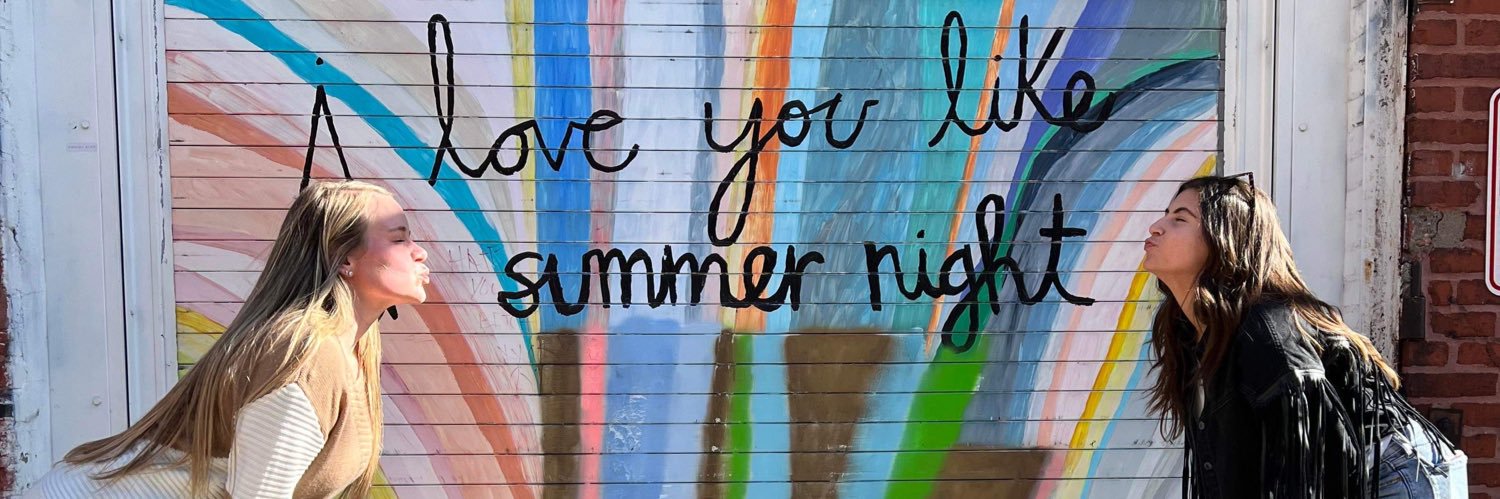 i love you like
summer night